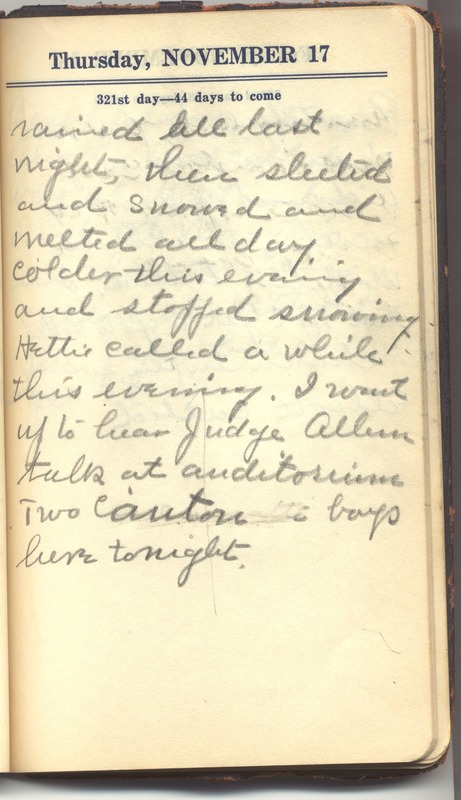 Thursday, NOVEMBER 17
321st day—44 days to come
rained all last
night, then sleeted
and snowed and
melted all day
colder this evening
and stopped snowing
Hettie called a while
this evening. I went
up to hear Judge Allen
talk at auditorium
Two Canton boys
here tonight.